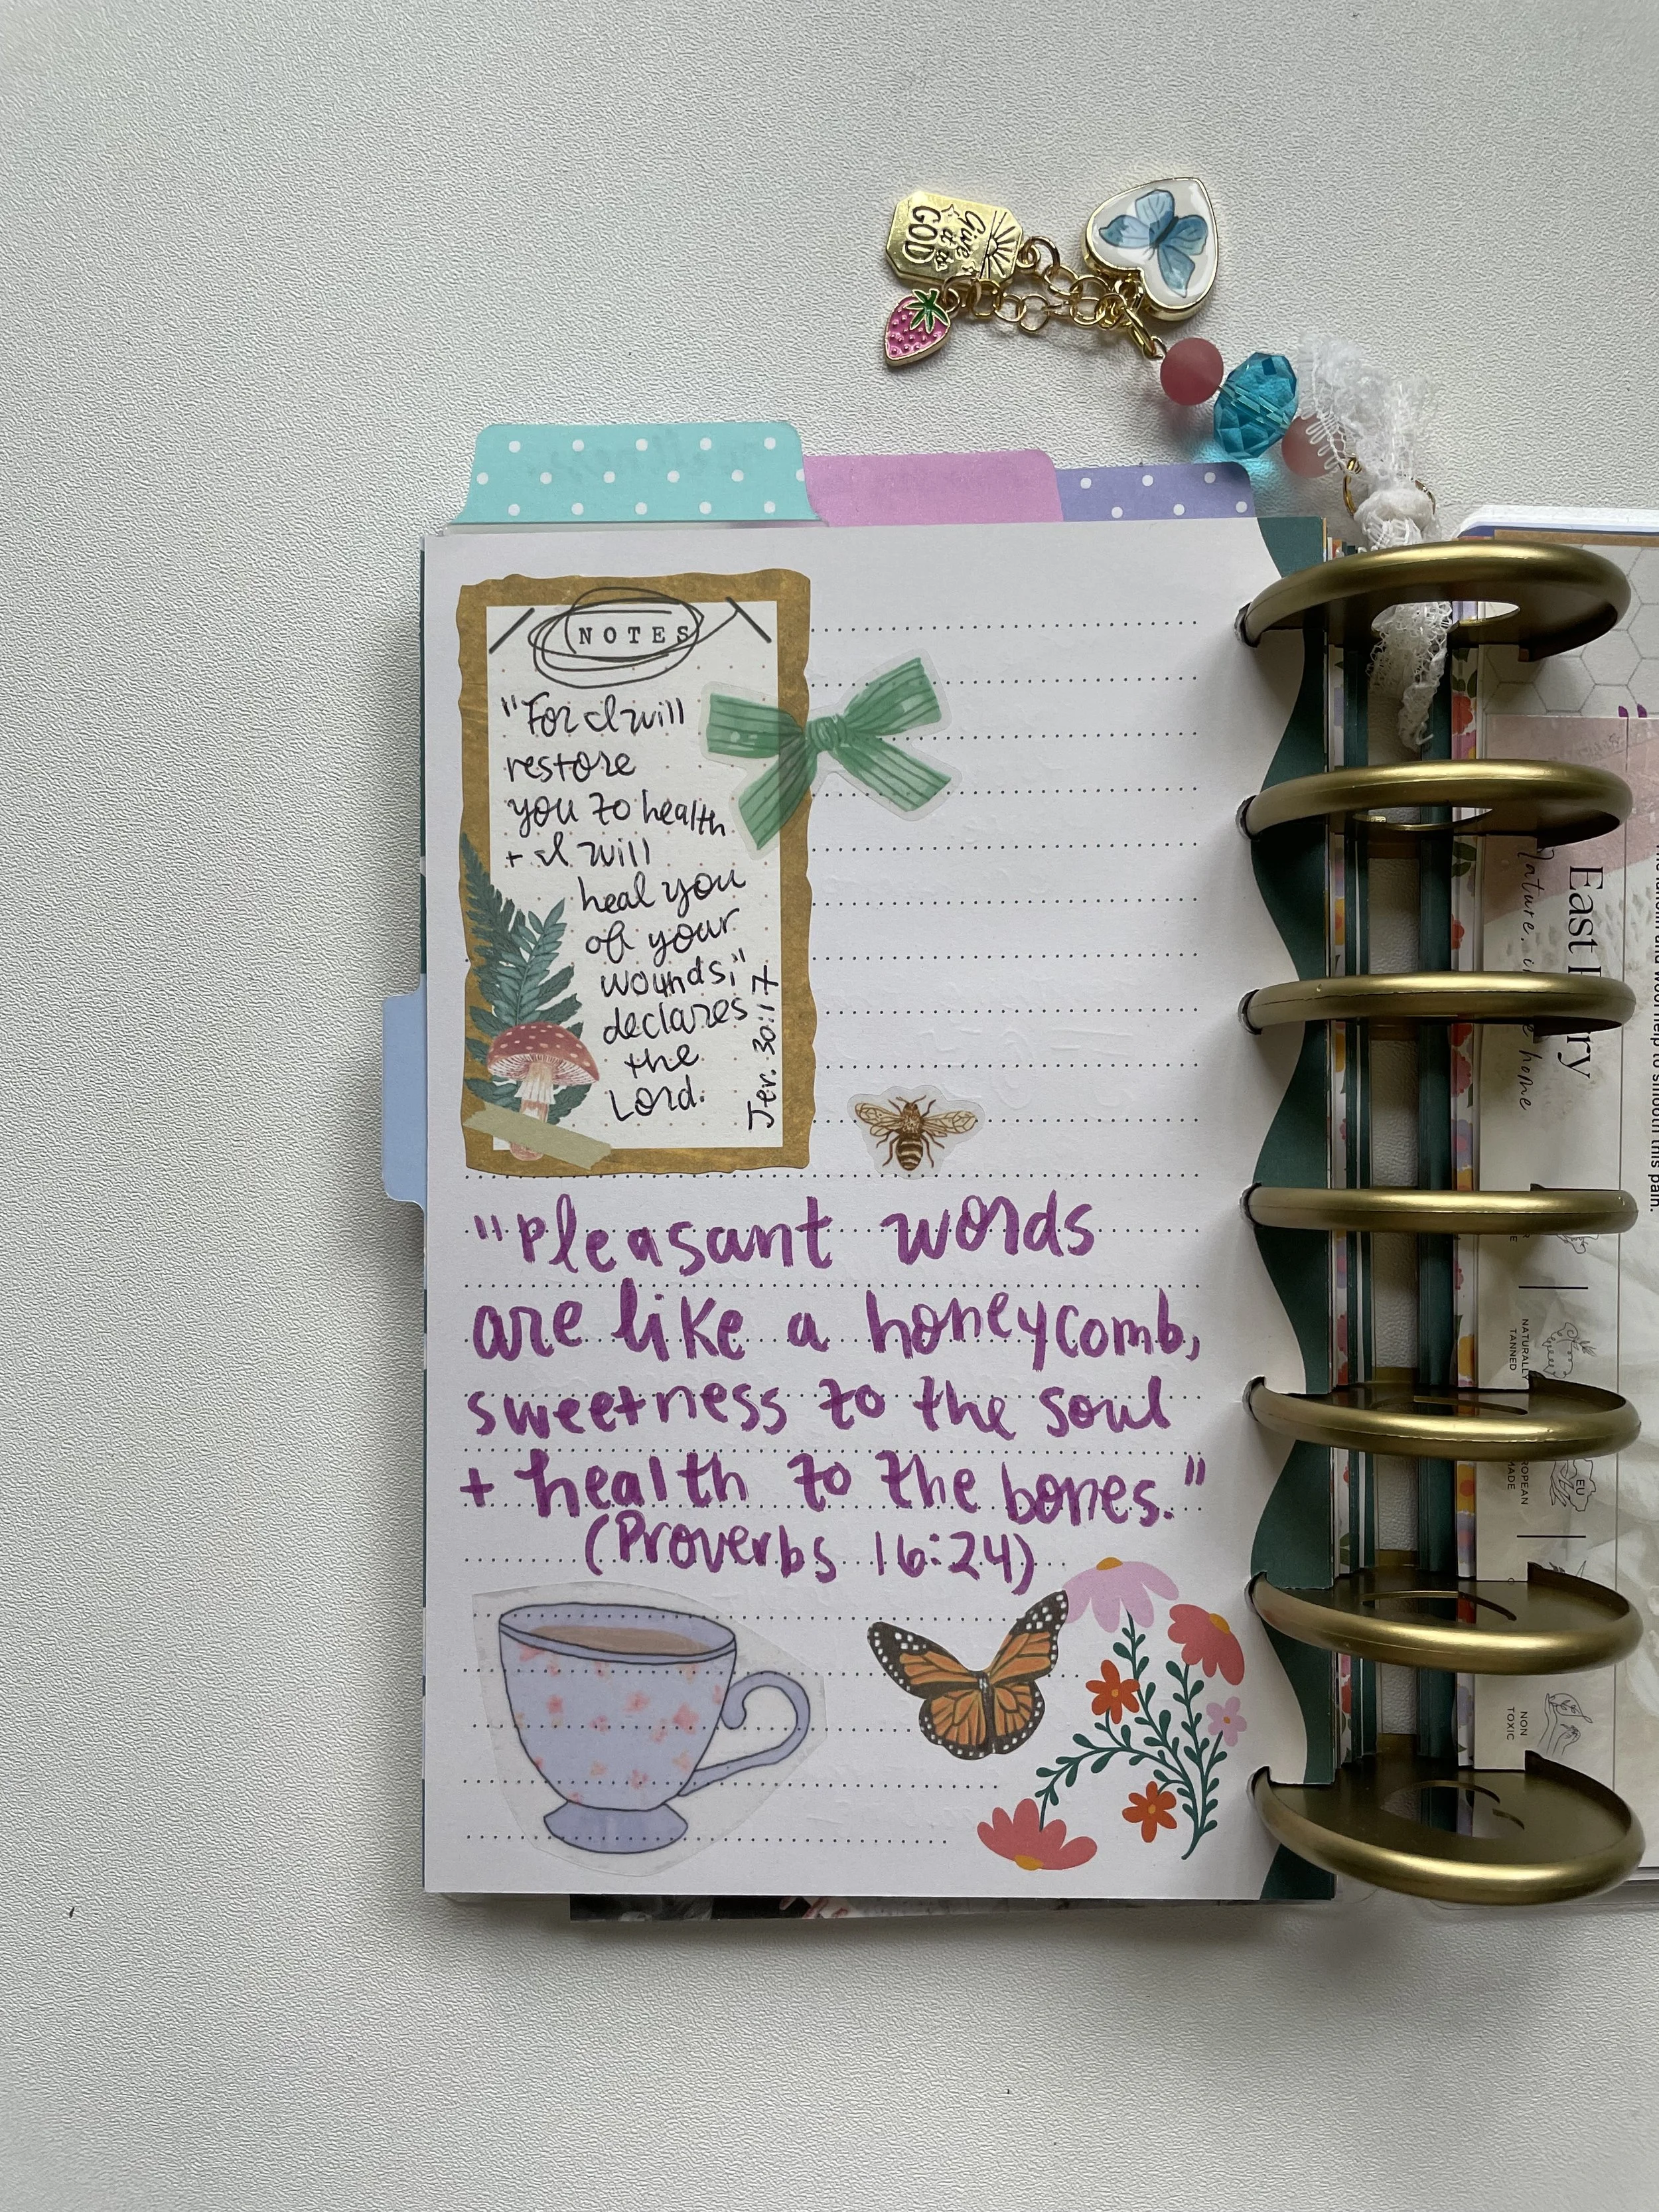 Give
it to
GOD
NOTES
"For I will
restore
you to health
+ I will
heal you
of your
wounds;"
declares
the
Lord.
Jer. 30:17
"Pleasant words
are like a honeycomb,
sweetness to the soul
+ health to the bones."
(Proverbs 16:24)
East
Nature. in
home
help to smooth this pain.
NATURALLY
TANNED
EU
NON
TOXIC